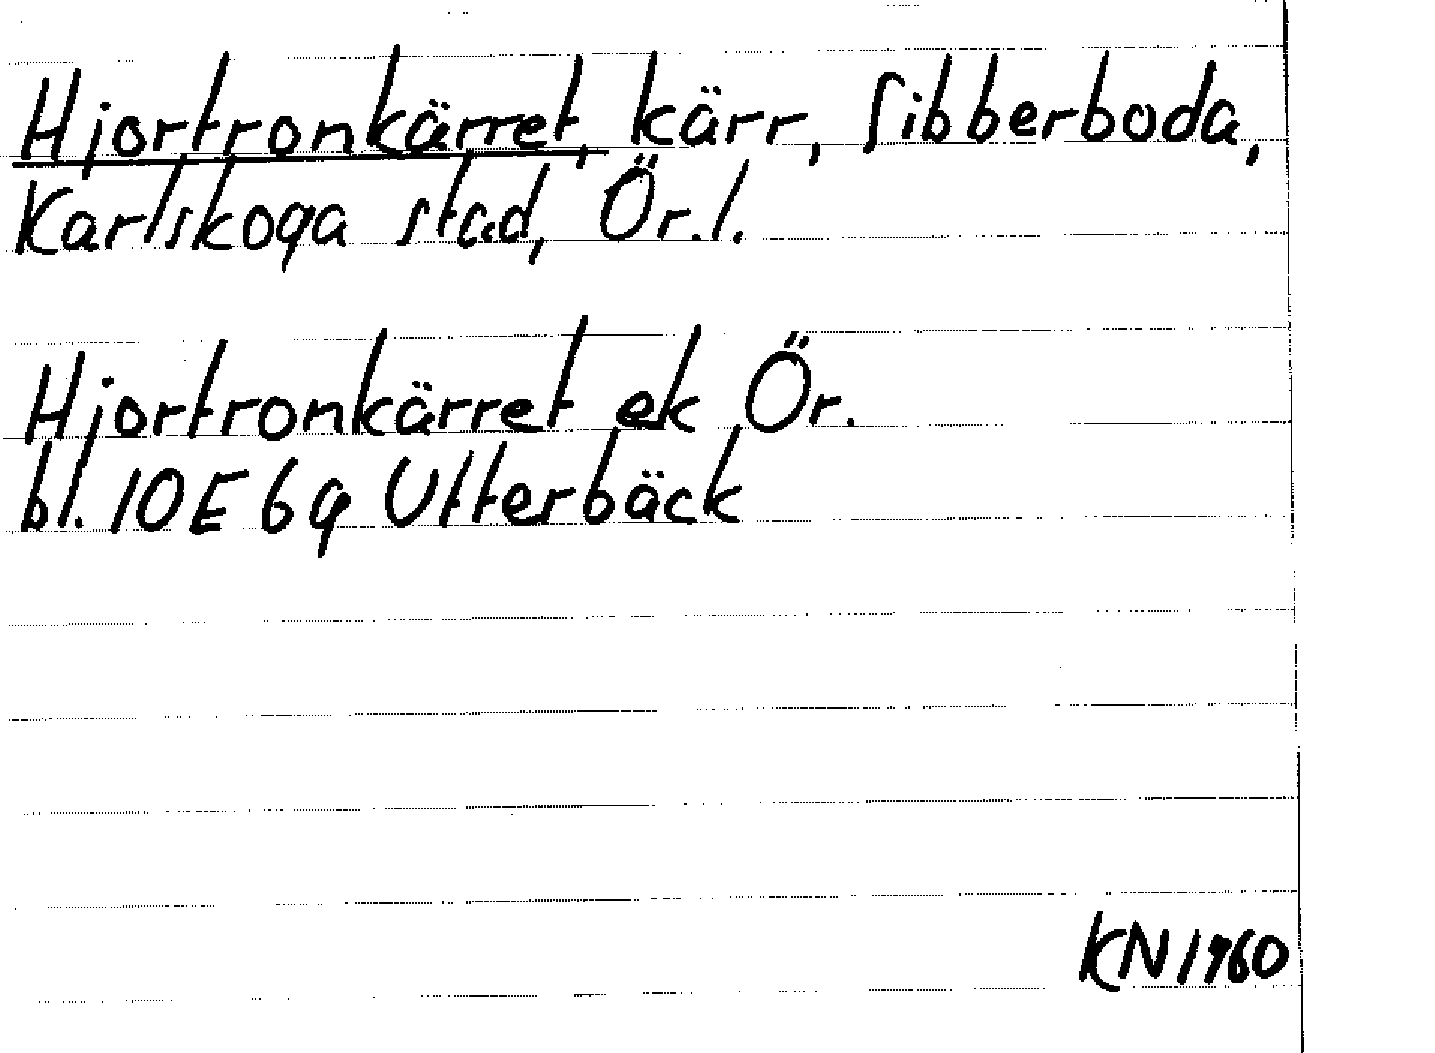 Hjortronkärret, kärr, Sibberboda,
Karlskoga stad, Ör.l.
Hjortronkärret ek Ör.
bl. 10E 6g Utterbäck
KN 1960